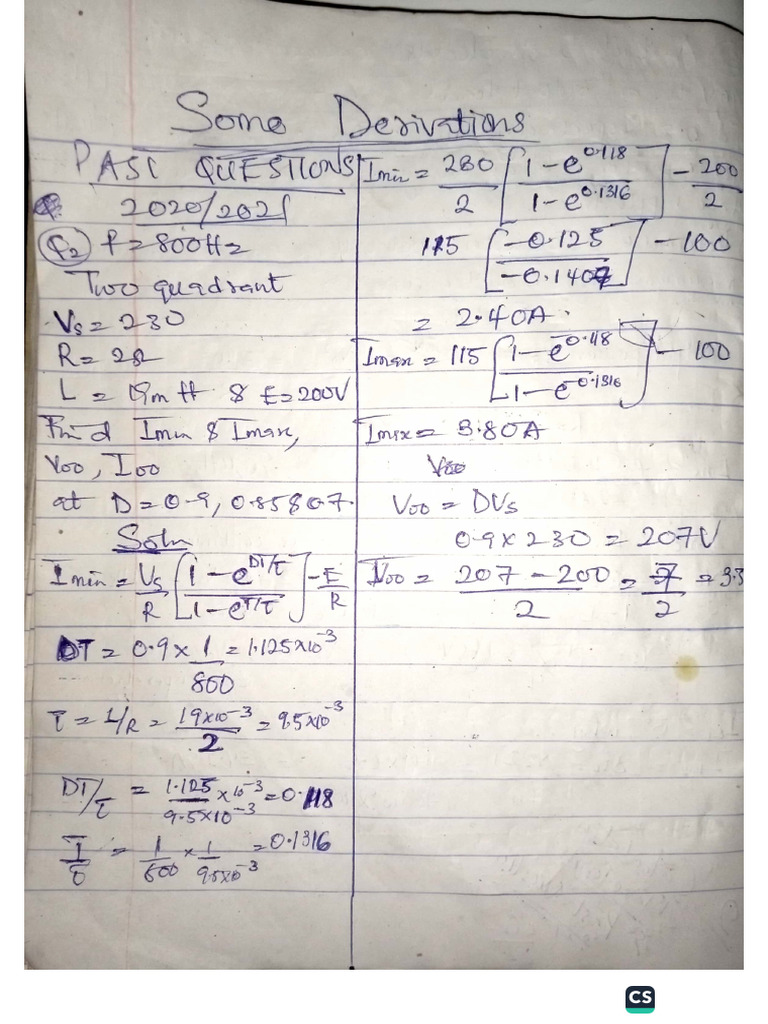 Some Derivations
PAST QUESTIONS
2020/2021
Q2 f = 800Hz
Two quadrant
Vs = 230
R = 2Ω
L = 19mH & E = 200V
Find Imin & Imax,
Voo, Ioo
at D = 0.9, 0.85807.
Soln
Imin = Vs/R [1 - e^DT/τ / 1 - e^T/τ] - E/R
DT = 0.9 × 1/800 = 1.125×10^-3
τ = L/R = 19×10^-3/2 = 9.5×10^-3
DT/τ = 1.125/9.5×10^-3 × 10^-3 = 0.118
T/τ = 1/800 × 1/9.5×10^-3 = 0.1316
Imin = 230/2 [1 - e^0.118 / 1 - e^0.1316] - 200/2
115 [-0.125 / -0.1407] - 100
= 2.40A.
Imax = 115 [1 - e^-0.118 / 1 - e^-0.1316] - 100
Imax = 3.80A
Voo = DVs
0.9 × 230 = 207V
= 207 - 200/2 = 7/2 = 3.3
CS